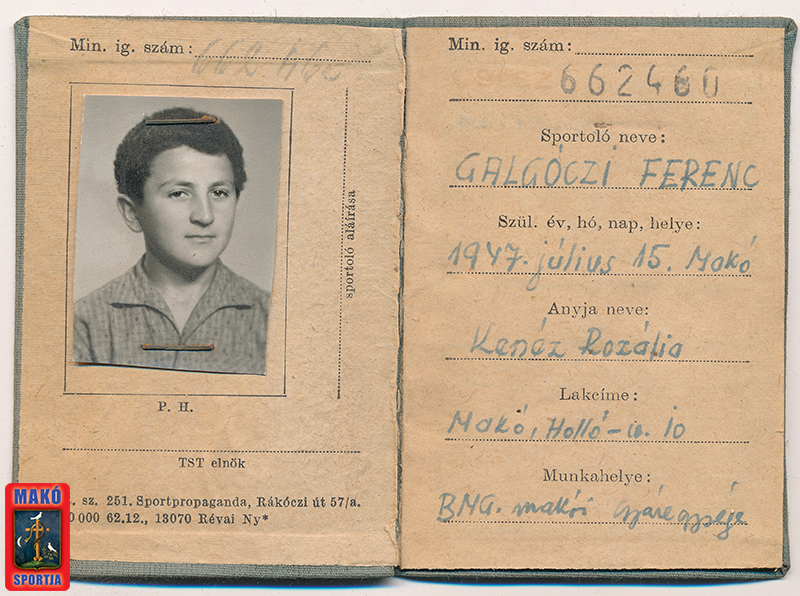 Min. ig. szám:
P. H.
sportoló aláírása
TST elnök
sz. 251. Sportpropaganda, Rákóczi út 57/a.
000 62.12., 13070 Révai Ny*
MAKÓ
SPORTJA
Min. ig. szám:
662460
Sportoló neve:
GALGÓCZI FERENC
Szül. év, hó, nap, helye:
1947. július 15. Makó
Anyja neve:
Kenéz Rozália
Lakcíme:
Makó, Holló-u. 10
Munkahelye:
BNG. makói Gyáregysége